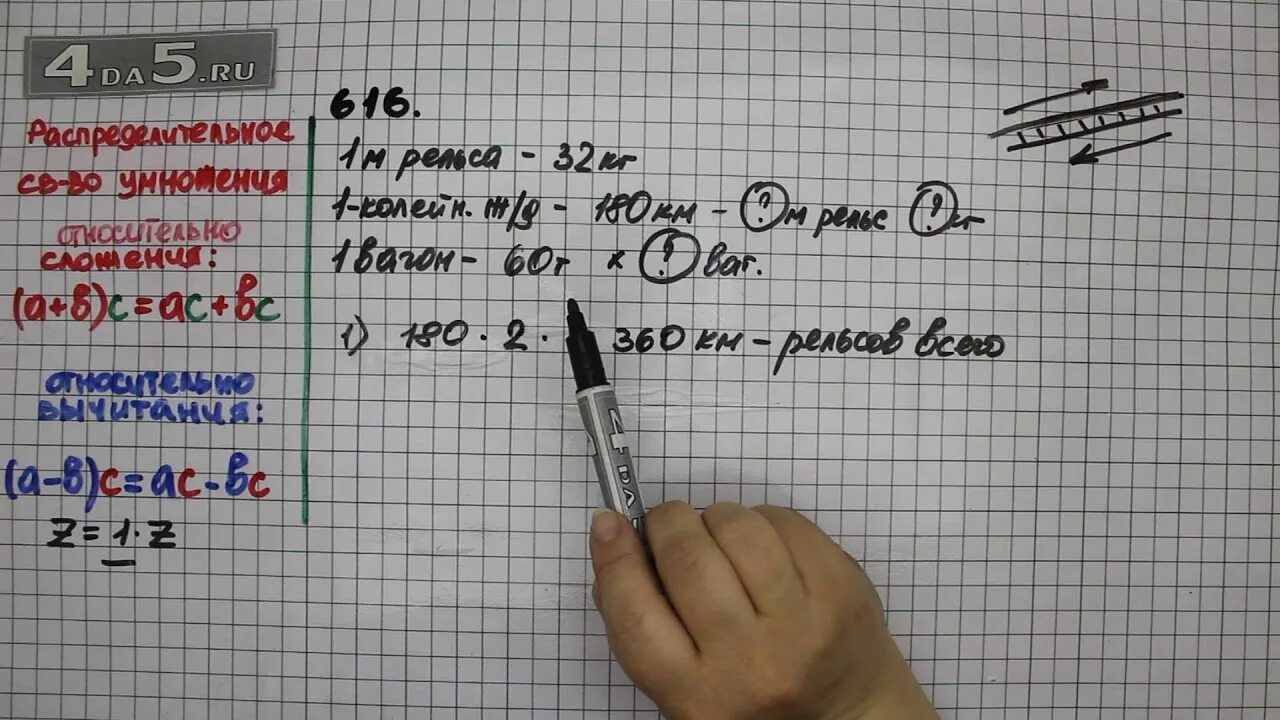 4DA5.RU
Распределительное
св-во умножения
относительно
сложения:
(a+в)c=ac+вc
относительно
вычитания:
(a-в)c=ac-вc
z=1·z
616.
1м рельса - 32кг
1-колейн. ж/д - 180км - ? м рельс ? кг
1 вагон - 60т × ? ваг.
1) 180 · 2 · 360 км - рельсов всего
4DA5